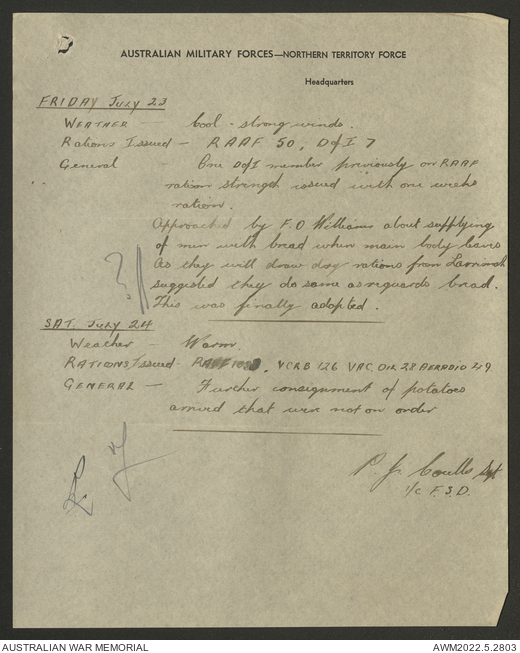 AUSTRALIAN MILITARY FORCES—NORTHERN TERRITORY FORCE
Headquarters
FRIDAY July 23
WEATHER Cool - strong winds.
Rations Issued — RAAF 50, DofI 7
General - One DofI member previously on RAAF
ration strength issued with one weeks
ration.
Approached by F.O Williams about supplying
of men with bread when main body leaves
As they will draw dry rations from Larrimah
suggested they do same as regards bread.
This was finally adopted.
SAT. July 24
Weather - Warm.
RATIONS Issued - RAAF, VCRB 126 VAC. OIL 28 AERADIO 49
GENERAL — Further consignment of potatoes
arrived that were not on order
P. J. Coulls Sgt
I/C F.S.D.
AUSTRALIAN WAR MEMORIAL
AWM2022.5.2803